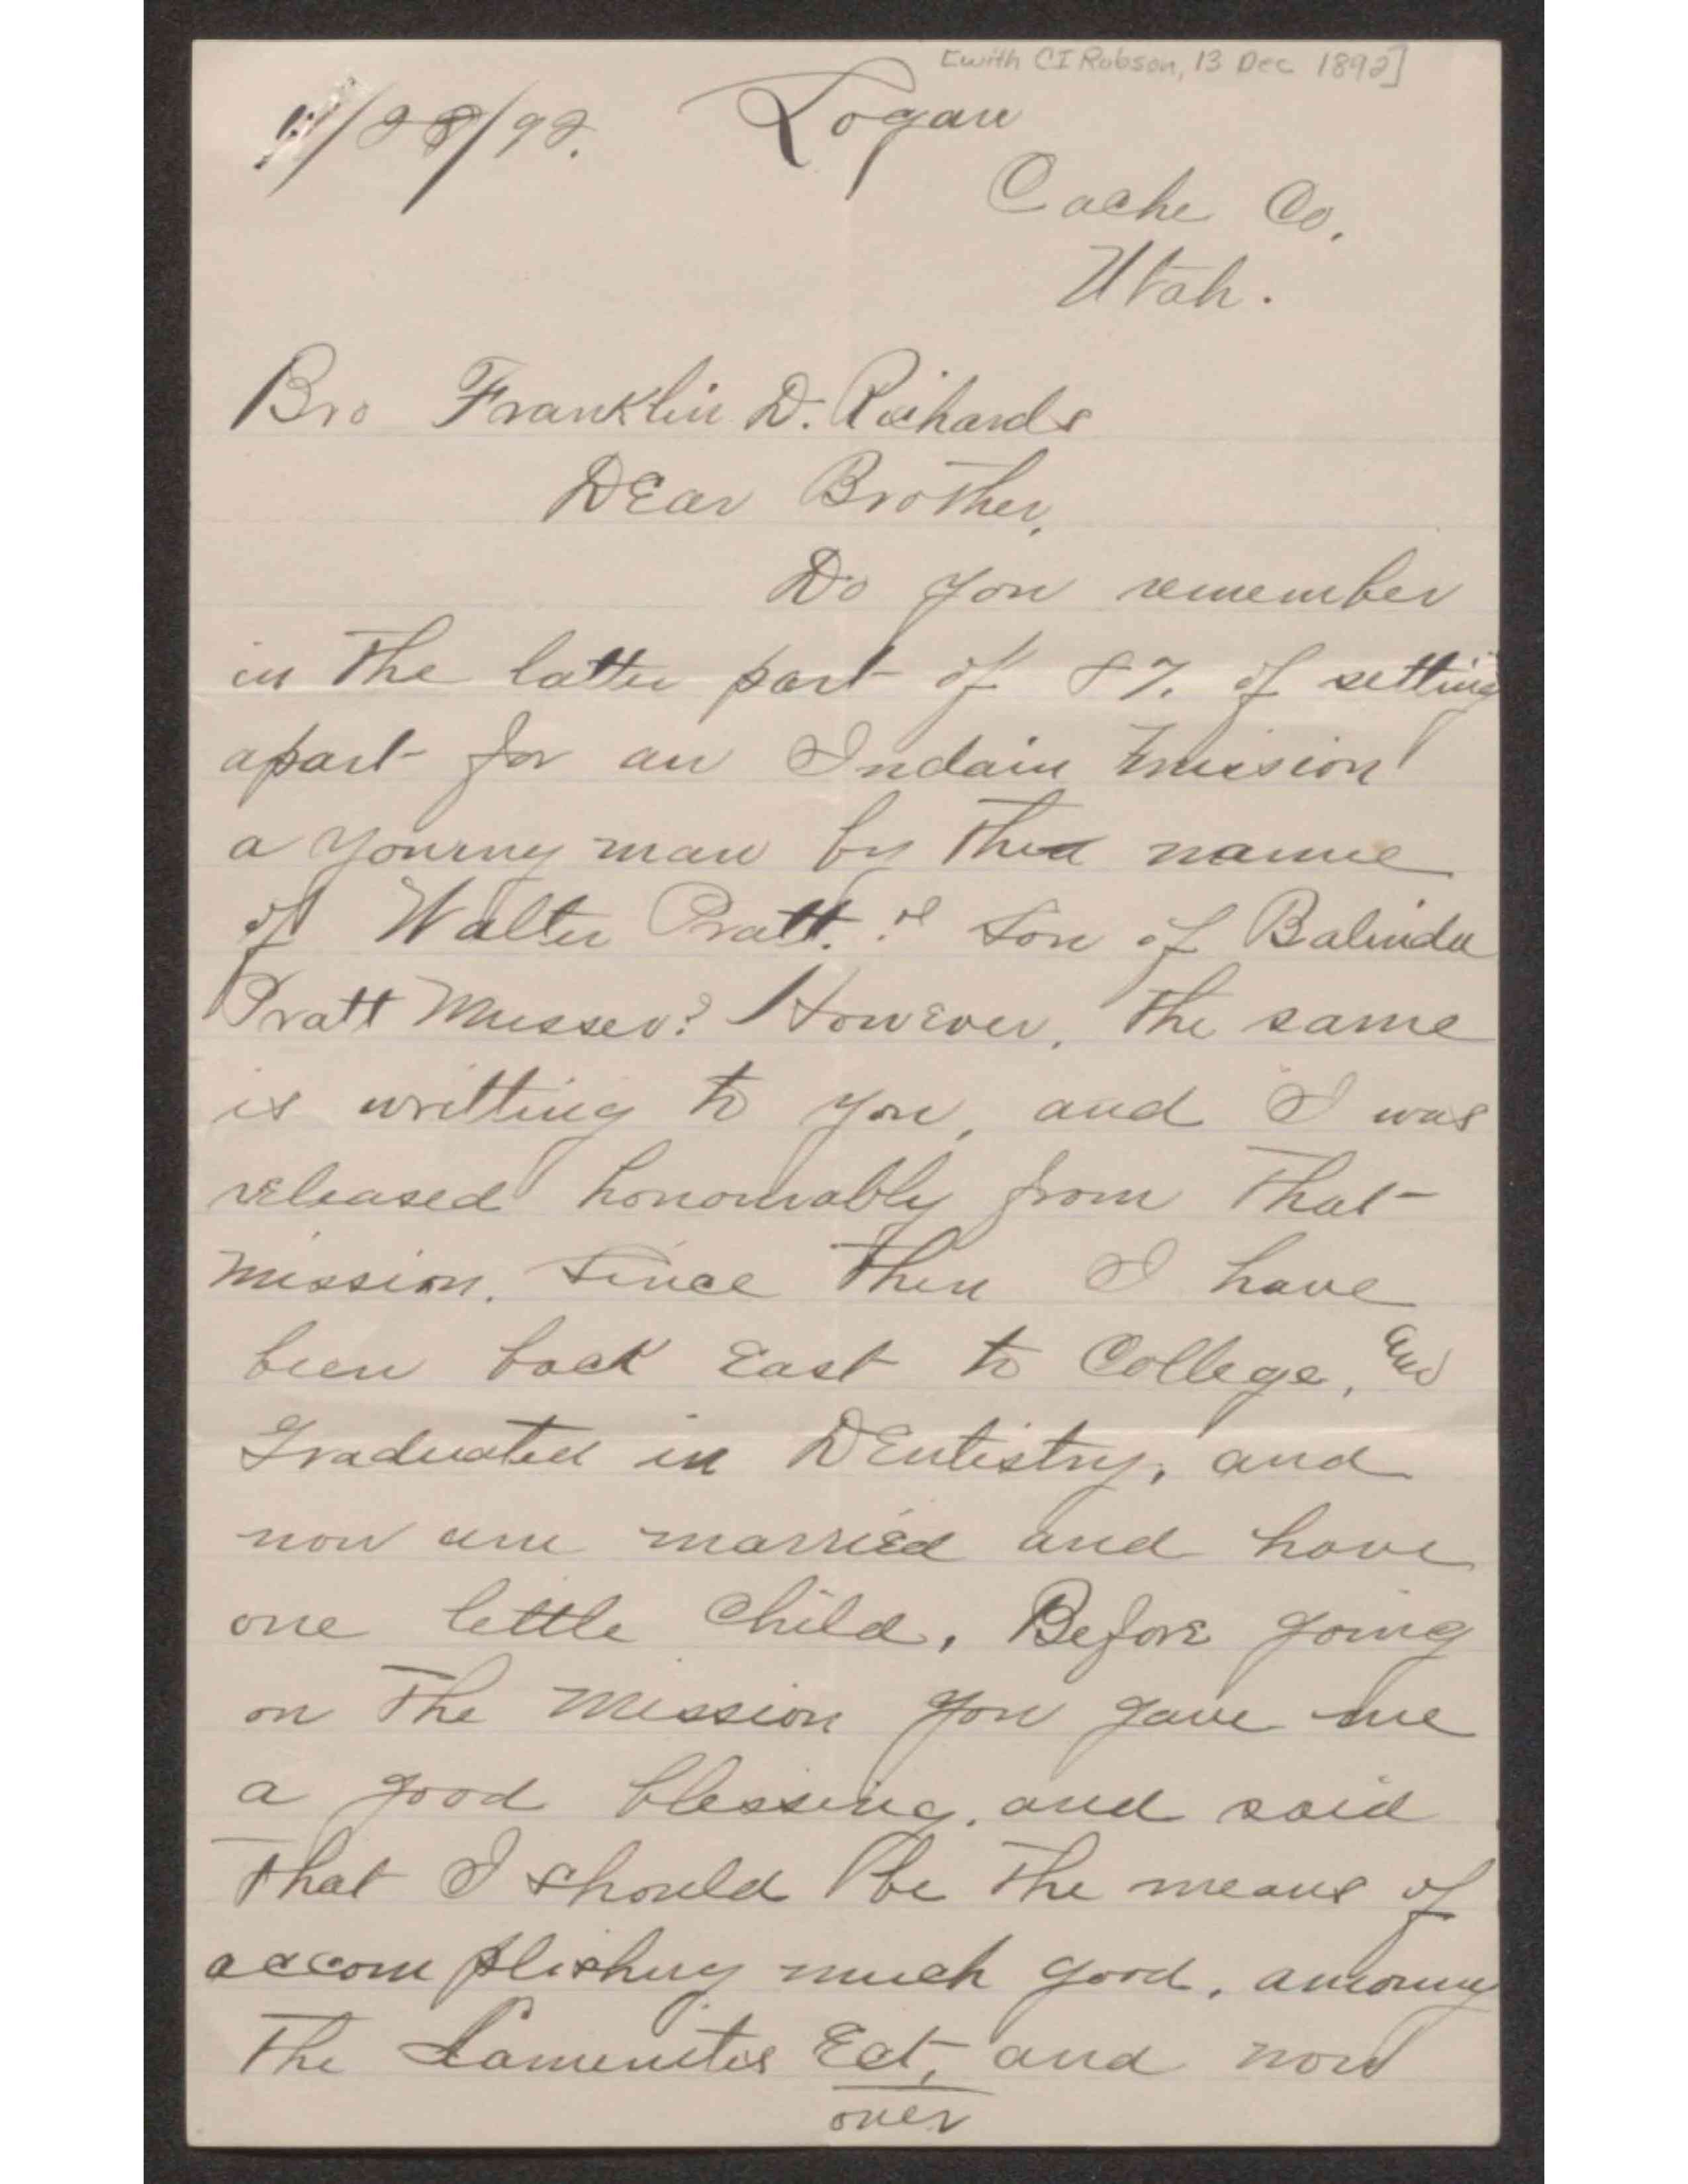 [with CI Robson, 13 Dec 1892]
11/28/92. Logan
Cache Co,
Utah.
Bro Franklin D. Richards
DEar Brother,
Do you remember
in the latter part of 87. of setting
apart for an Indain mission
a younng man by the name
of Walter Pratt. Son of Balinda
Pratt Musser? However, the same
is writting to you, and I was
released honourably from that
mission. Since then I have
been back East to College, and
Graduated in DEntistry, and
now am married and have
one little child. Before going
on the mission you gave me
a good blessing, and said
that I should be the means of
accomplishing much good, amoung
the Lamenites Ect, and now
over